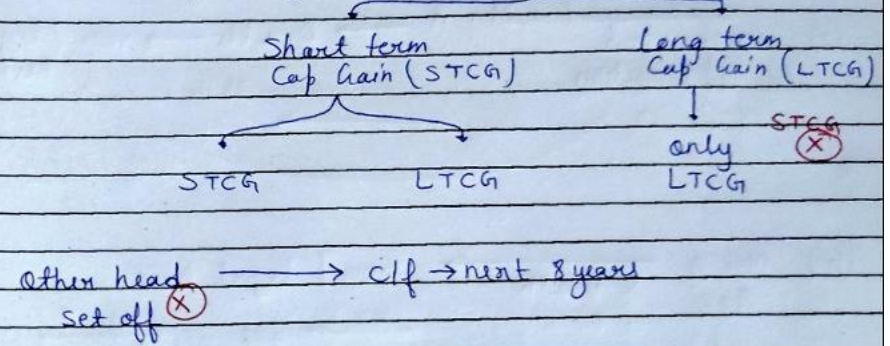 Short term
Cap Gain (STCG)
Long term
Cap Gain (LTCG)
STCG
LTCG
only
LTCG
STCG
X
Other head
set off X
c/f → next 8 years